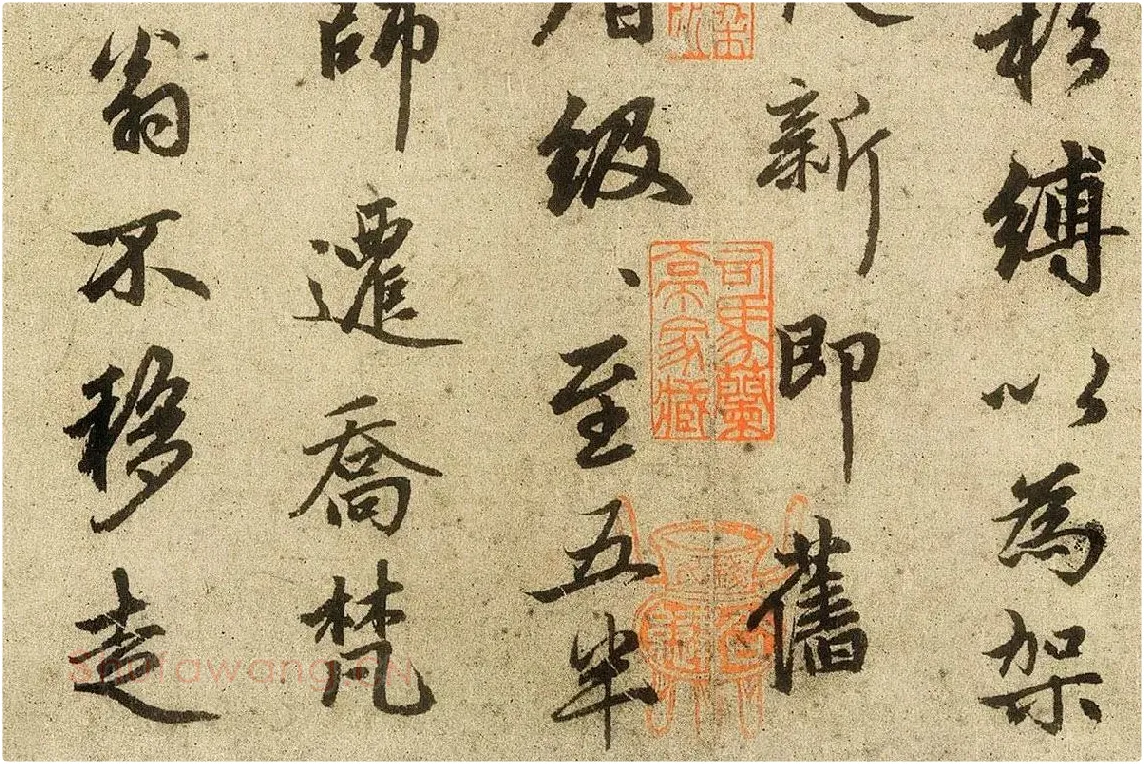 縛以為架
新即舊
級、至五半
師遷喬梵
翁不移
司馬蘭
亭家藏
Shufawang.CN